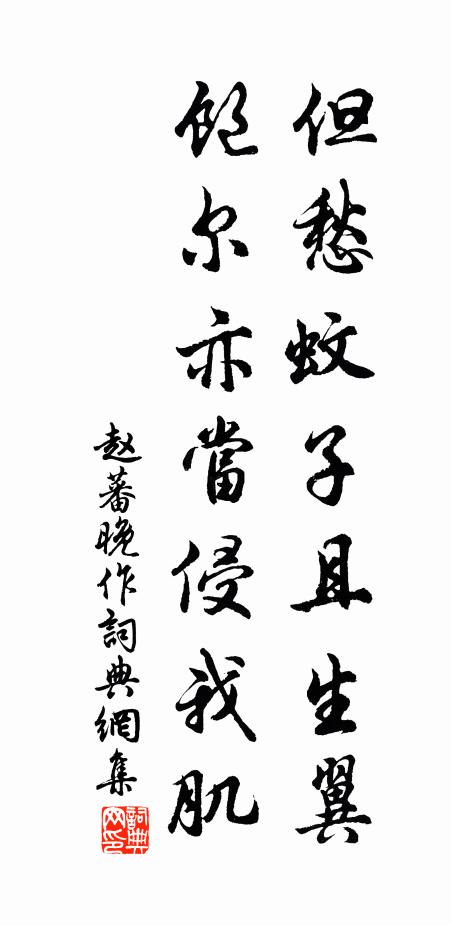 但愁蚊子且生翼
飽尔亦當侵我肌
赵蕃晚作詞典網集
詞典网印